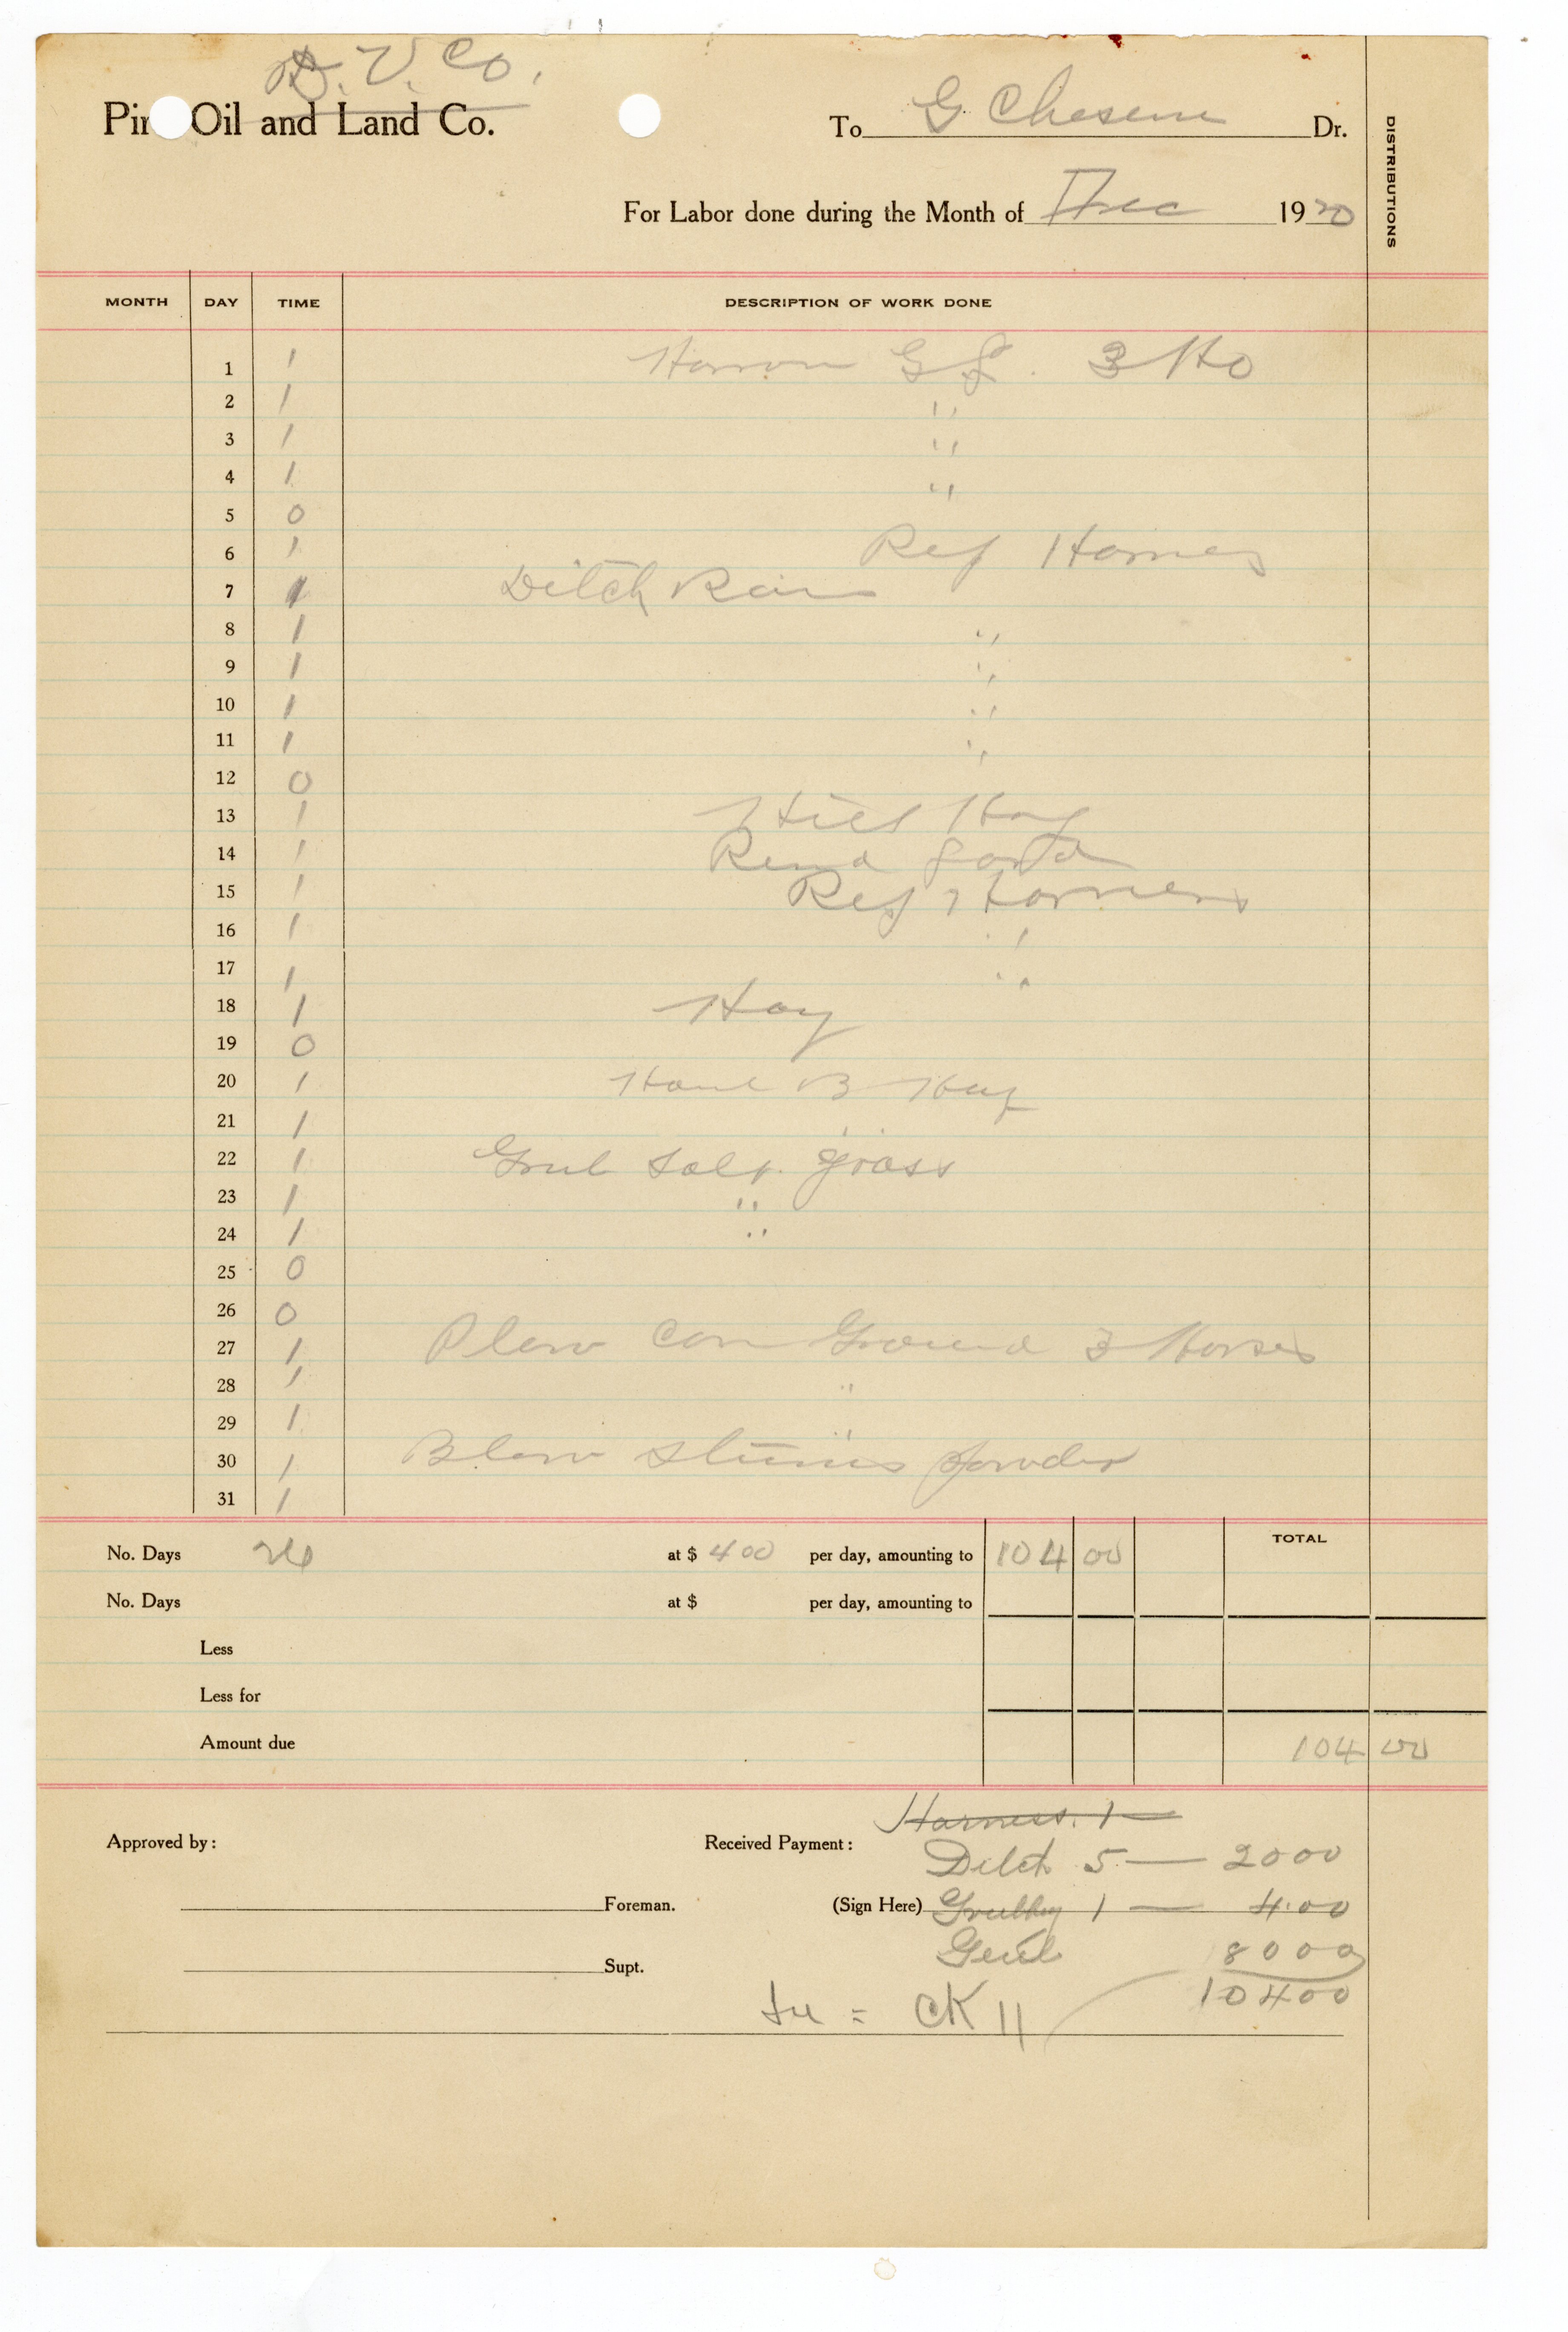 D. V. Co.
Oil and Land Co.
To G Dr.
For Labor done during the Month of Dec 1920
DISTRIBUTIONS
MONTH DAY TIME DESCRIPTION OF WORK DONE
1 1 3 Ho
2 1 "
3 1 "
4 1 "
5 0
6 1 Rep
7 1 Ditch
8 1 "
9 1 "
10 1 "
11 1 "
12 0
13 1 Hay
14 1
15 1 Rep
16 1 "
17 1 "
18 1 Hay
19 0
20 1 B Hay
21 1 "
22 1 Grub Salt grass
23 1 "
24 1 "
25 0
26 0
27 1 Plow Corn Ground 3 Horses
28 1 "
29 1 "
30 1 Blow Stumps Powder
31 1
TOTAL
No. Days 26 at $ 4 00 per day, amounting to 104 00
No. Days at $ per day, amounting to
Less
Less for
Amount due 104 00
Harness 1 —
Approved by: Received Payment:
Ditch 5 — 20 00
Foreman. (Sign Here) Grubbing 1 — 4.00
Genl 80 00
Supt.
104 00
CK 11